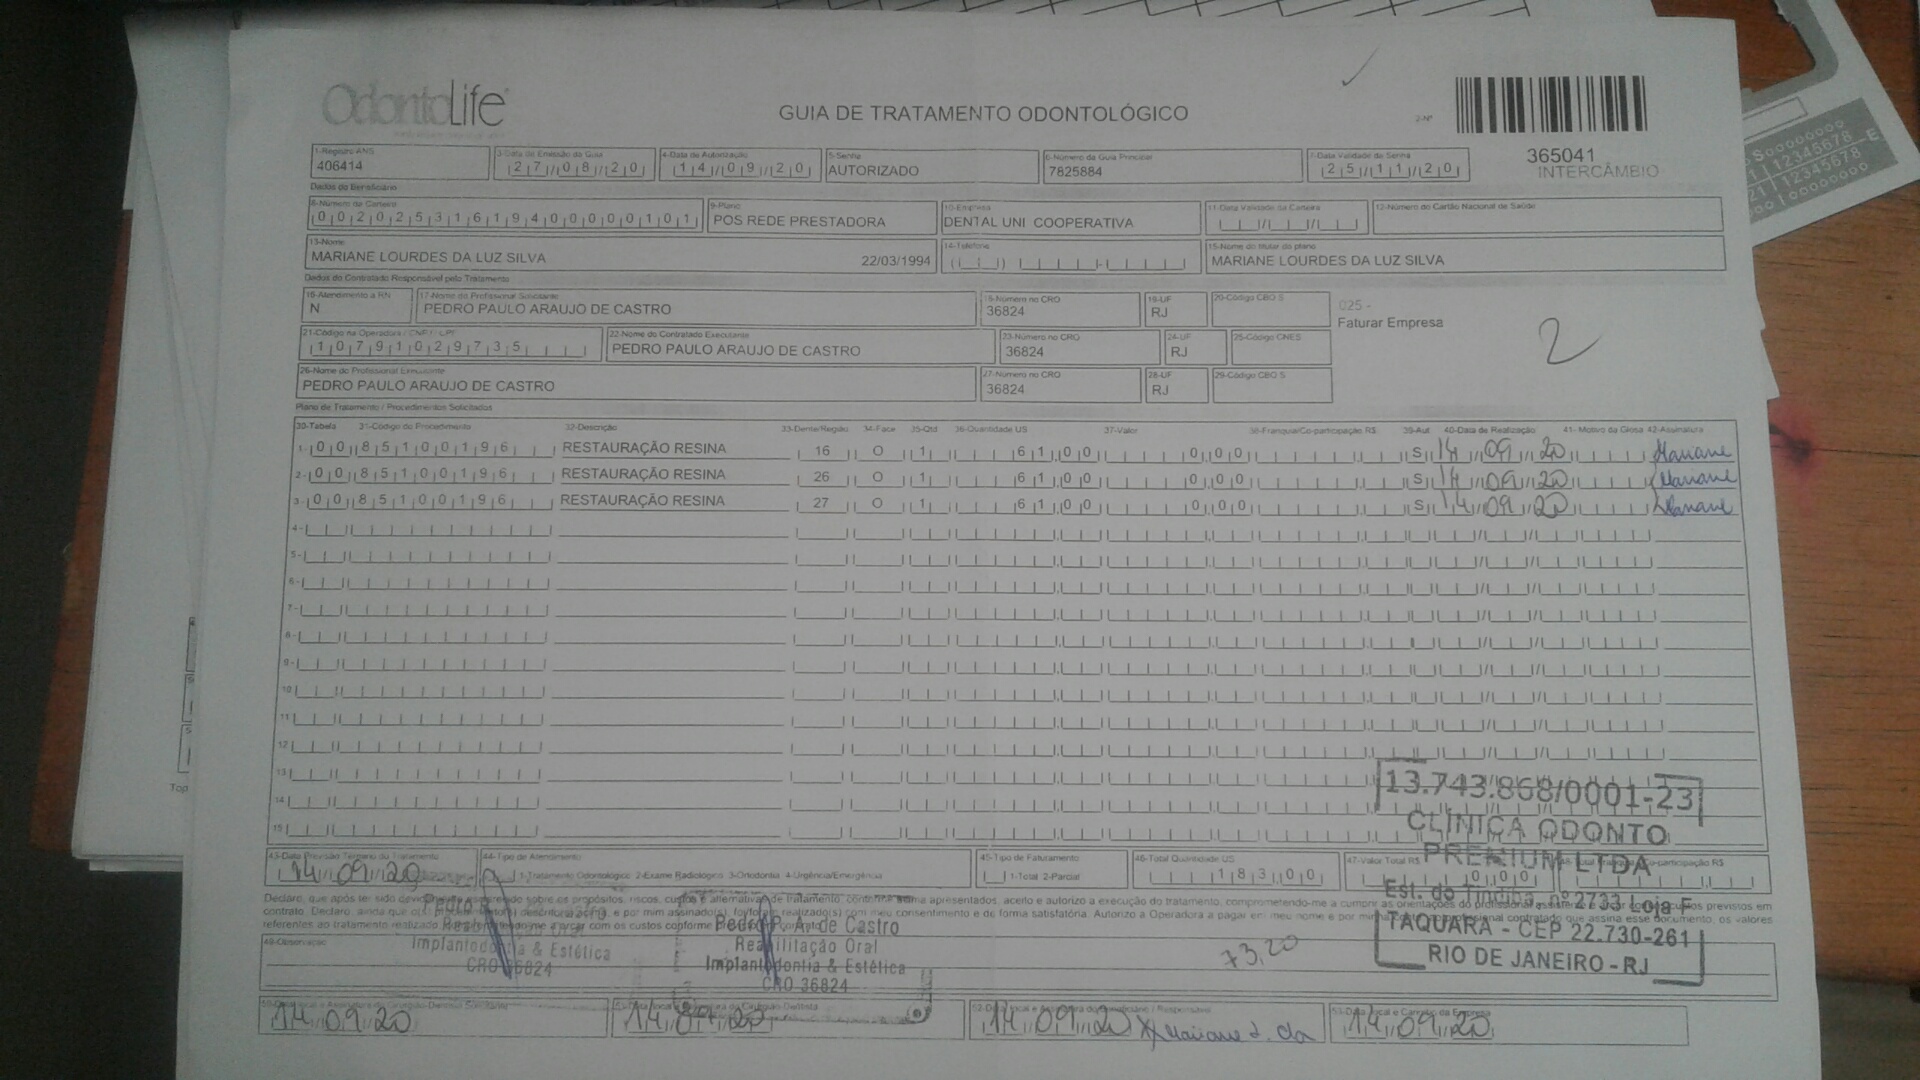 OdontoLife
GUIA DE TRATAMENTO ODONTOLÓGICO
2-Nº
365041
INTERCÂMBIO
1-Registro ANS
406414
3-Data de Emissão da Guia
27/08/20
4-Data de Autorização
14/09/20
5-Senha
AUTORIZADO
6-Número da Guia Principal
7825884
7-Data Validade da Senha
25/11/20
Dados do Beneficiário
8-Número da Carteira
00202531619400000101
9-Plano
POS REDE PRESTADORA
10-Empresa
DENTAL UNI COOPERATIVA
11-Data Validade da Carteira
12-Número do Cartão Nacional de Saúde
13-Nome
MARIANE LOURDES DA LUZ SILVA 22/03/1994
14-Telefone
15-Nome do titular do plano
MARIANE LOURDES DA LUZ SILVA
Dados do Contratado Responsável pelo Tratamento
16-Atendimento a RN
N
17-Nome do Profissional Solicitante
PEDRO PAULO ARAUJO DE CASTRO
18-Número no CRO
36824
19-UF
RJ
20-Código CBO S
025 -
Faturar Empresa
2
21-Código na Operadora / CNPJ - CPF
10791029735
22-Nome do Contratado Executante
PEDRO PAULO ARAUJO DE CASTRO
23-Número no CRO
36824
24-UF
RJ
25-Código CNES
26-Nome do Profissional Executante
PEDRO PAULO ARAUJO DE CASTRO
27-Número no CRO
36824
28-UF
RJ
29-Código CBO S
Plano de Tratamento / Procedimentos Solicitados
30-Tabela 31-Código do Procedimento 32-Descrição 33-Dente/Região 34-Face 35-Qtd 36-Quantidade US 37-Valor 38-Franquia/Co-participação R$ 39-Aut 40-Data de Realização 41- Motivo da Glosa 42-Assinatura
1- 00 85100196 RESTAURAÇÃO RESINA 16 O 1 61,00 0,00 S 14 09 20 Mariane
2- 00 85100196 RESTAURAÇÃO RESINA 26 O 1 61,00 0,00 S 14 09 20 Mariane
3- 00 85100196 RESTAURAÇÃO RESINA 27 O 1 61,00 0,00 S 14 09 20 Mariane
4-
5-
6-
7-
8-
9-
10
11
12
13
14
15
13.743.868/0001-23
CLÍNICA ODONTO
PREMIUM LTDA
Est. do Tindiba, nº 2733 Loja F
TAQUARA - CEP 22.730-261
RIO DE JANEIRO - RJ
43-Data Previsão Término do Tratamento
14 09 20
44-Tipo de Atendimento
1-Tratamento Odontológico 2-Exame Radiológico 3-Ortodontia 4-Urgência/Emergência
45-Tipo de Faturamento
1-Total 2-Parcial
46-Total Quantidade US
183,00
47-Valor Total R$
0,00
Declaro, que após ter sido
sobre os propósitos, riscos,
alternativas de tratamento,
apresentados, aceito e autorizo a execução do tratamento, comprometendo-me a cumprir as orientações do profissional
previstos em
contrato. Declaro, ainda que
e por mim assinado(s),
realizado(s) com meu consentimento e de forma satisfatória. Autorizo a Operadora a pagar em meu nome e por
profissional contratado que assina esse documento, os valores
referentes ao tratamento realizado
com os custos conforme
49-Observação
Implantodontia & Estética
CRO 36824
Pedro P. A. de Castro
Reabilitação Oral
Implantodontia & Estética
CRO 36824
73,20
14 09 20
14 09 20
14 09 20 Mariane L. da
14 09 20